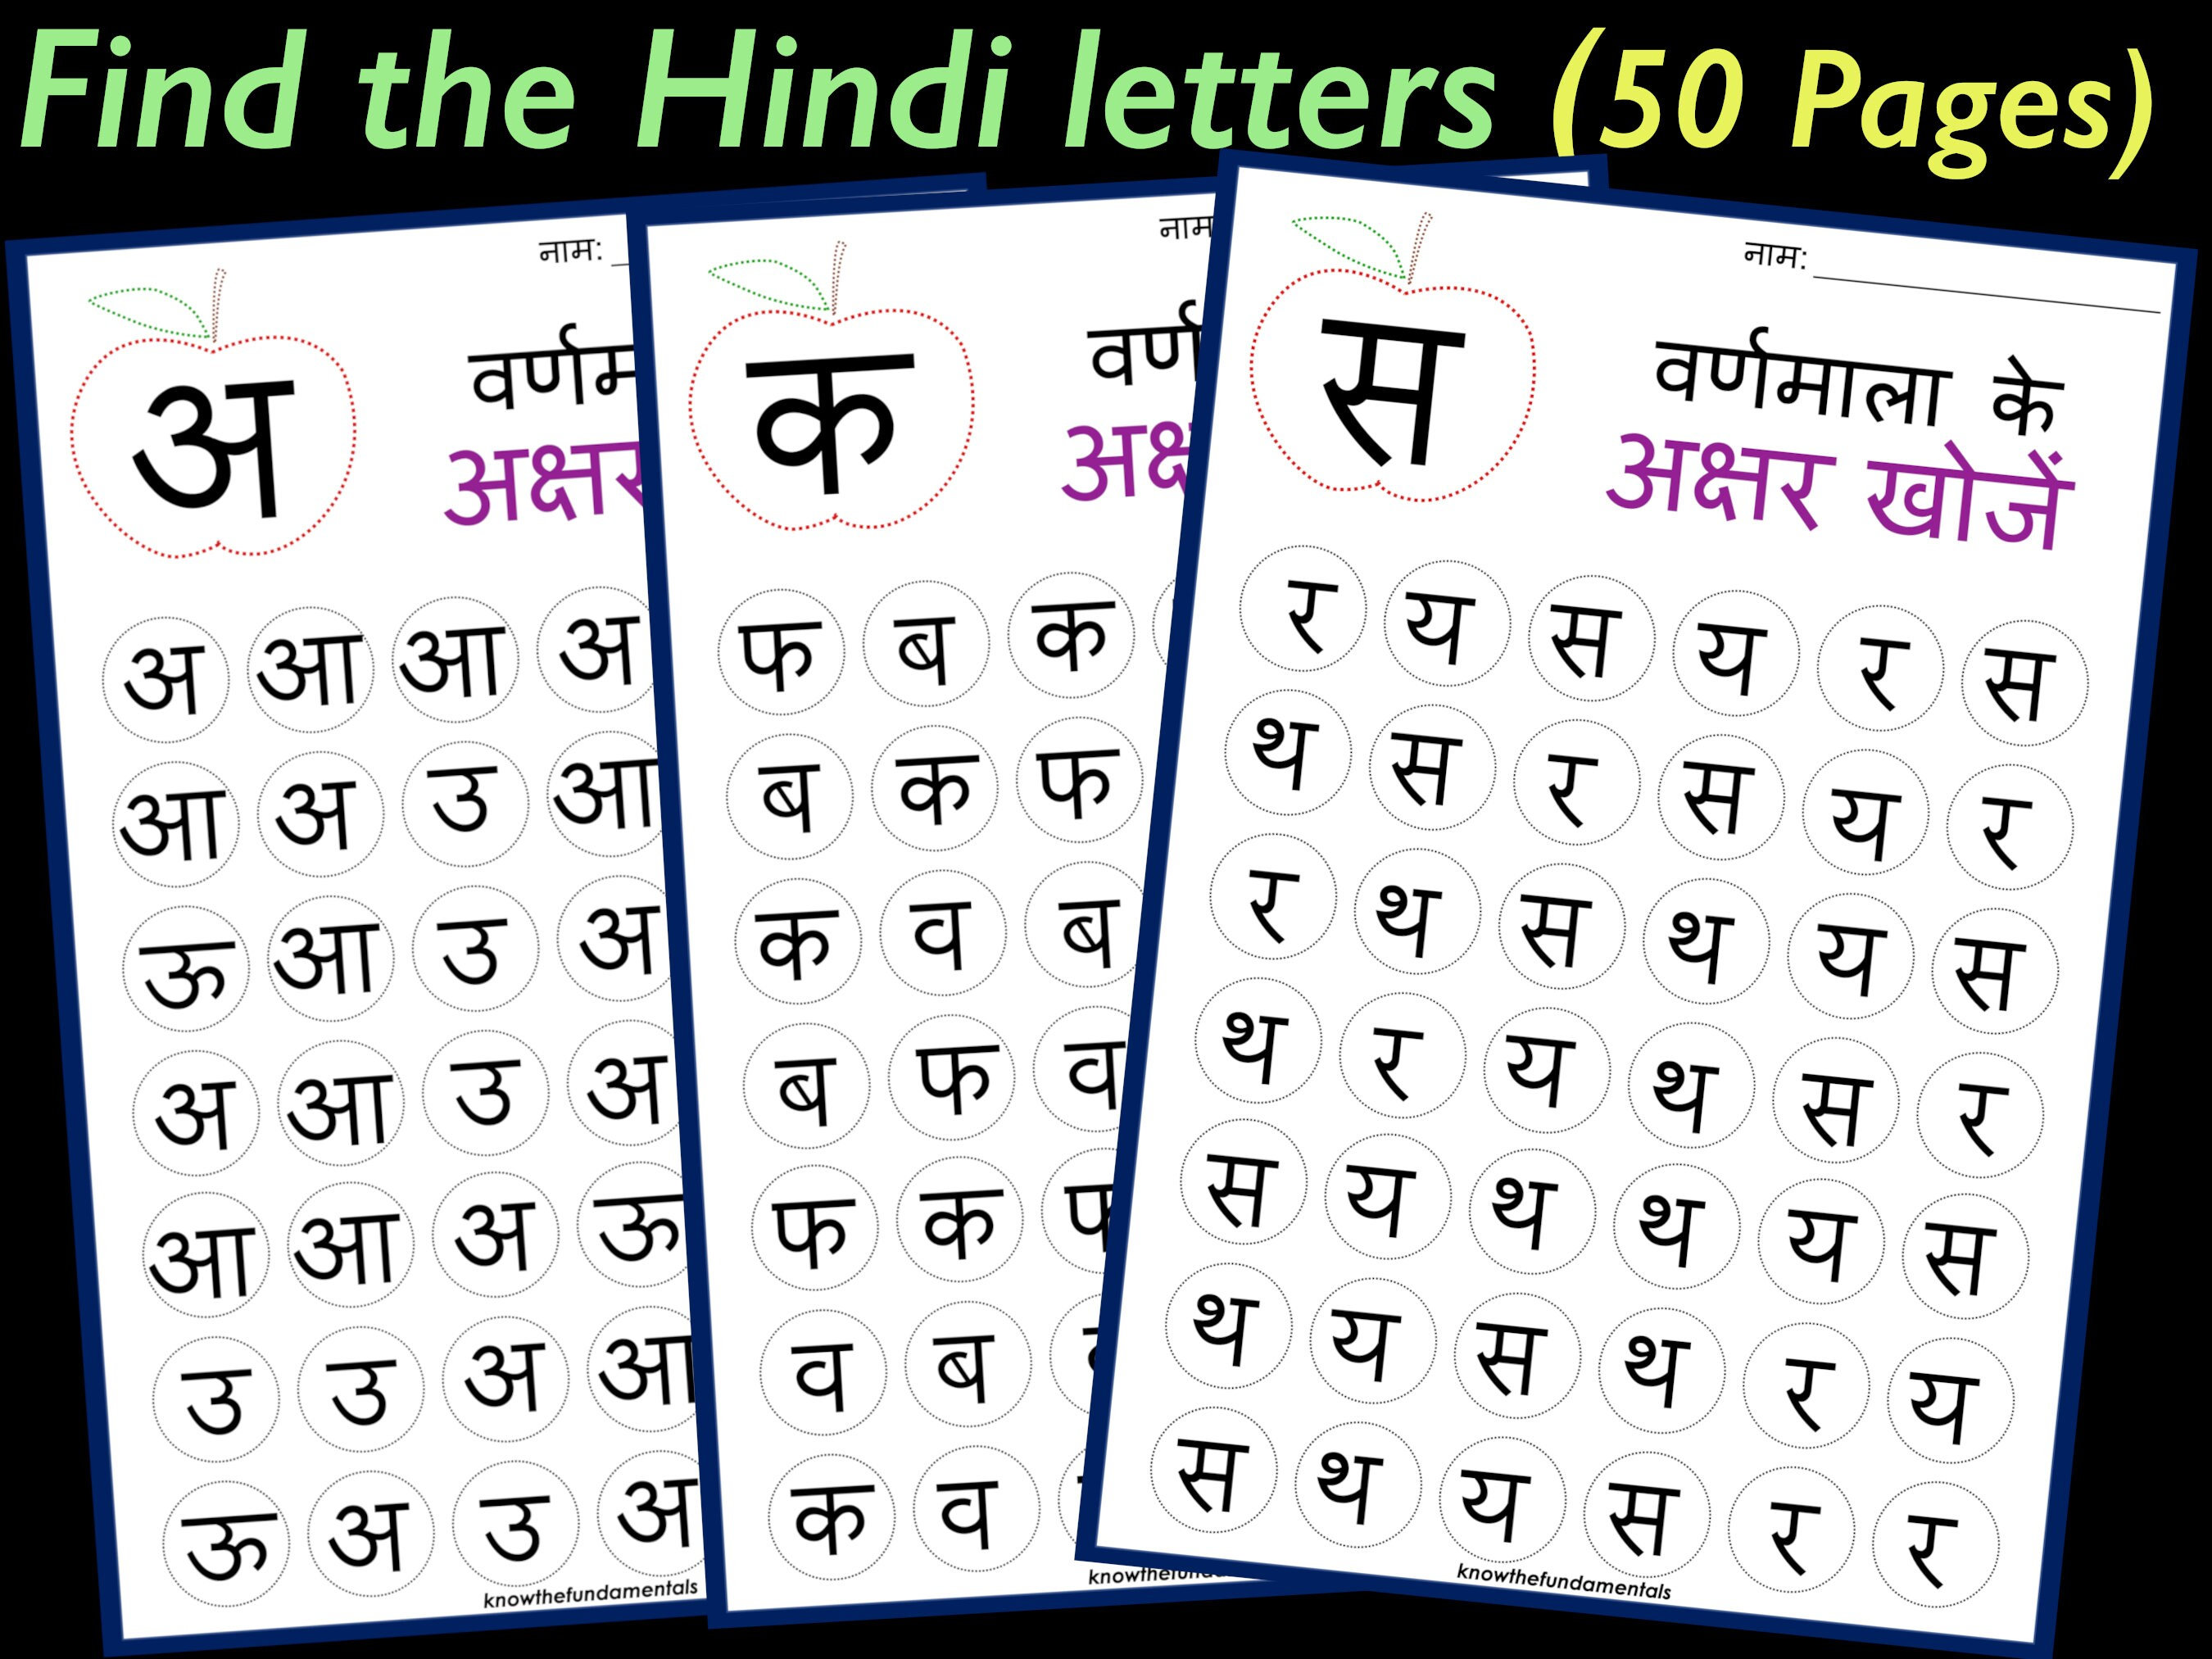 Find the Hindi letters (50 Pages)
नाम:
अ
अ आ आ अ
आ अ उ आ
ऊ आ उ अ
अ आ उ अ
आ आ अ ऊ
उ उ अ आ
ऊ अ उ अ
knowthefundamentals
नाम
क
फ ब क
ब क फ
क व ब
ब फ व
फ क
व ब
क व
नाम:
स
वर्णमाला के
अक्षर खोजें
र य स य र स
थ स र स य र
र थ स थ य स
थ र य थ स र
स य थ थ य स
थ य स थ र य
स थ य स र र
knowthefundamentals